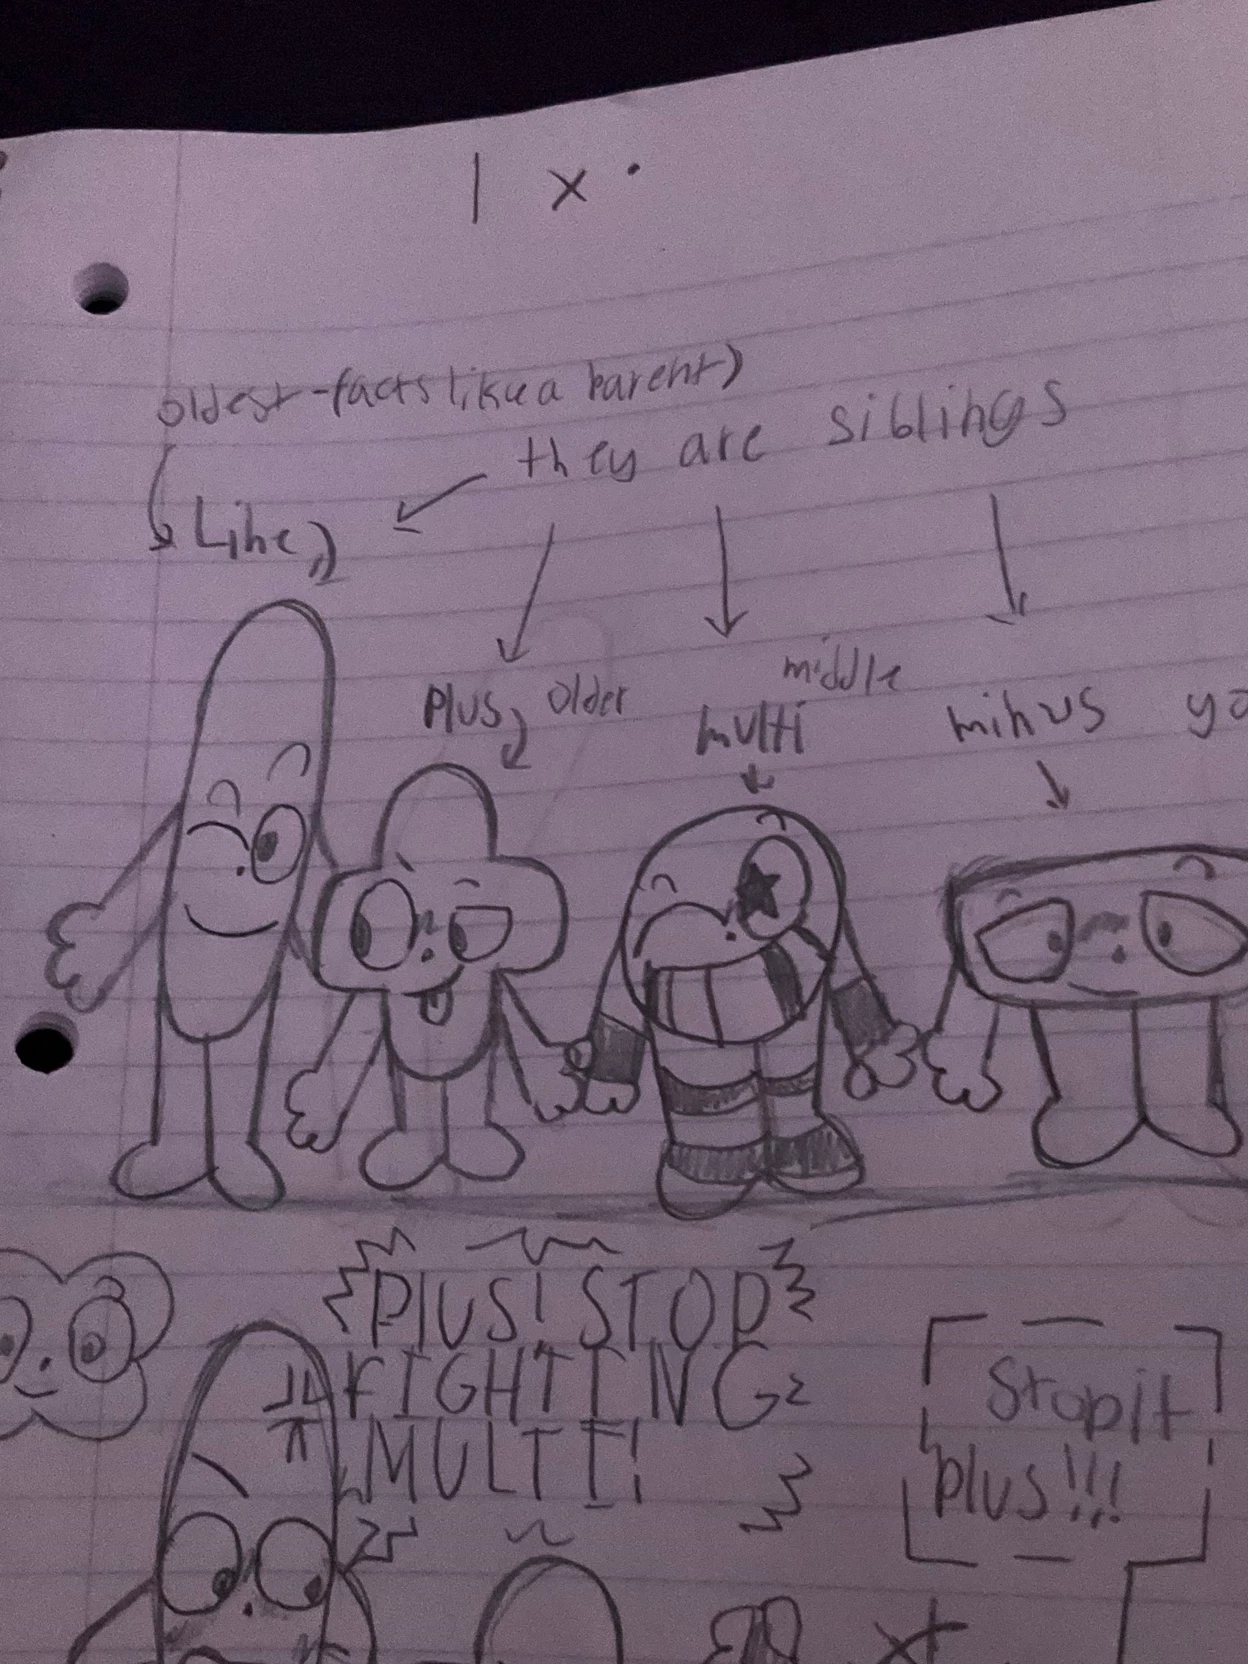 | x •
oldest-facts like a parent)
they are siblings
Line
Plus, older
middle
multi
minus yo
PlUS! STOP
FIGHTING
MULTI!
Stop it
plus!!!